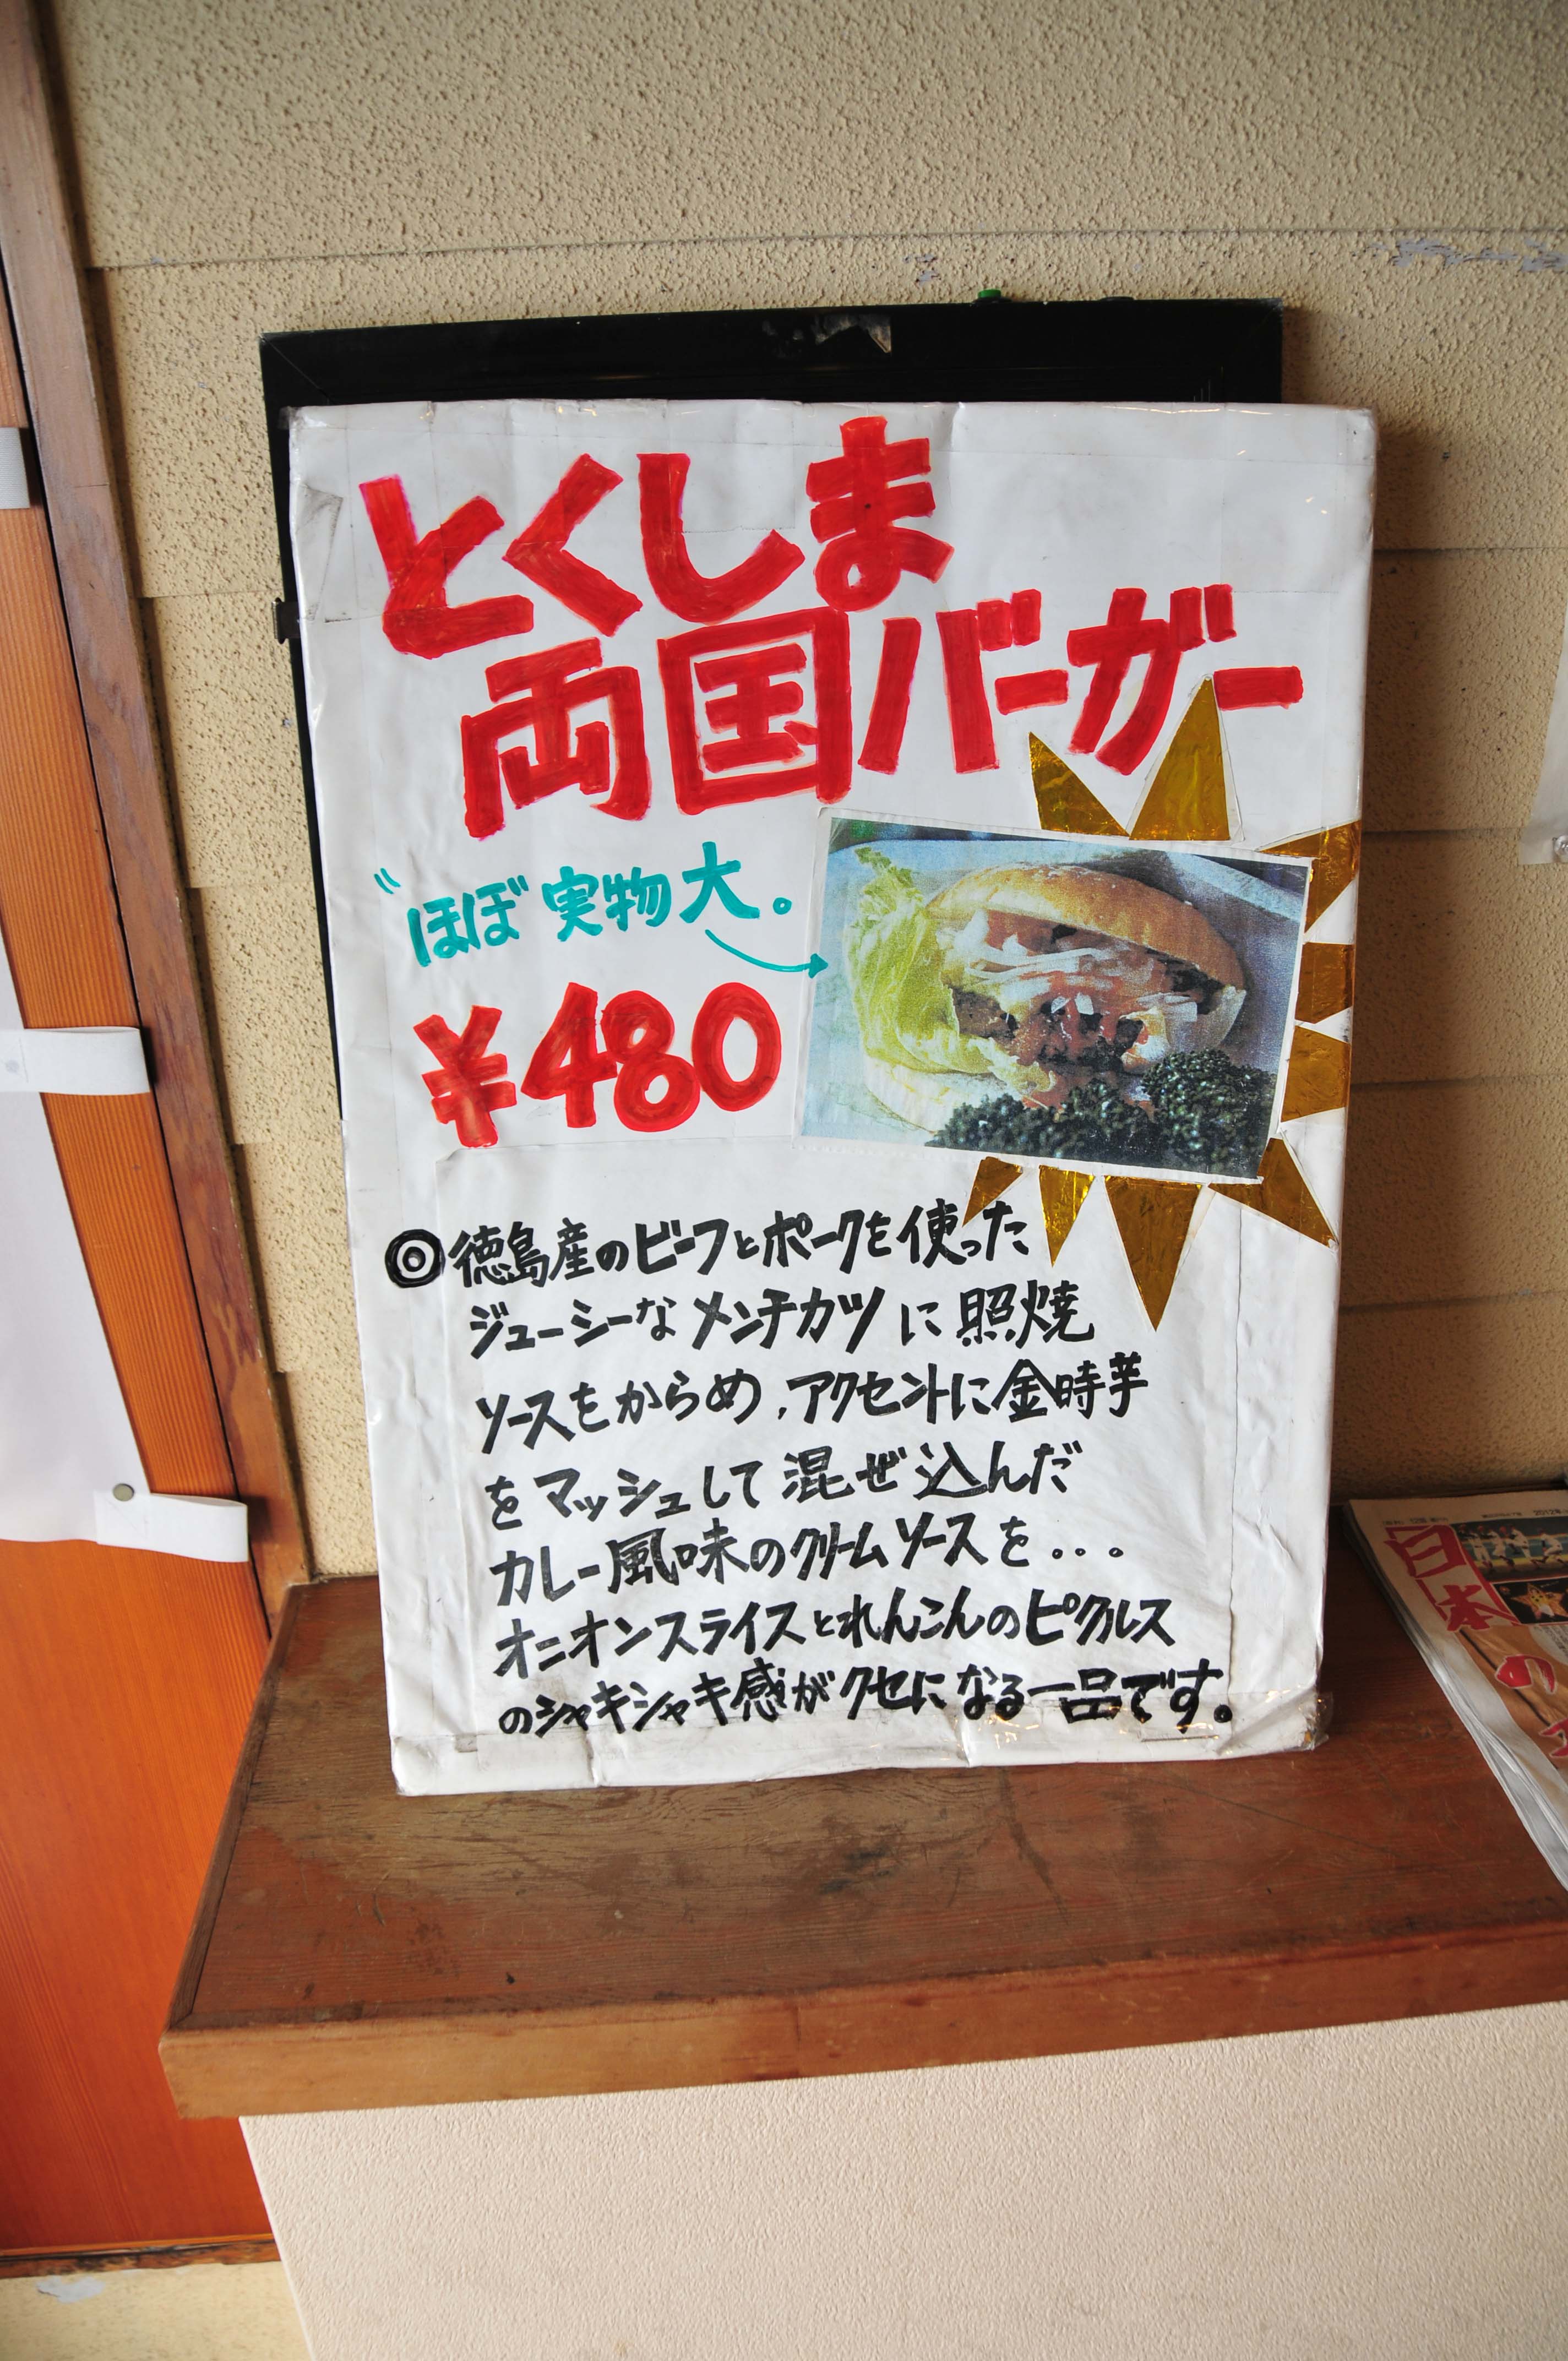 とくしま
両国バーガー
〝ほぼ〟実物大。
¥480
◎徳島産のビーフとポークを使った
ジューシーなメンチカツに照焼
ソースをからめ、アクセントに金時芋
をマッシュして混ぜ込んだ
カレー風味のクリームソースを...
オニオンスライスとれんこんのピクルス
のシャキシャキ感がクセになる一品です。
日本
の